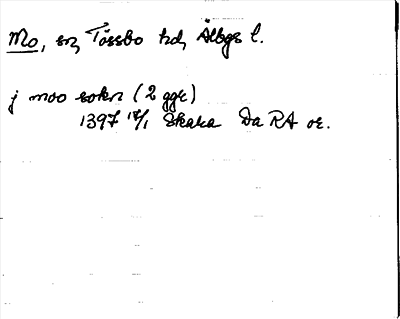 Mo, sn, Tössbo hd, Älbgs l.
j moo sokn (2 ggr)
1397 17/1 Skara Da RA or.